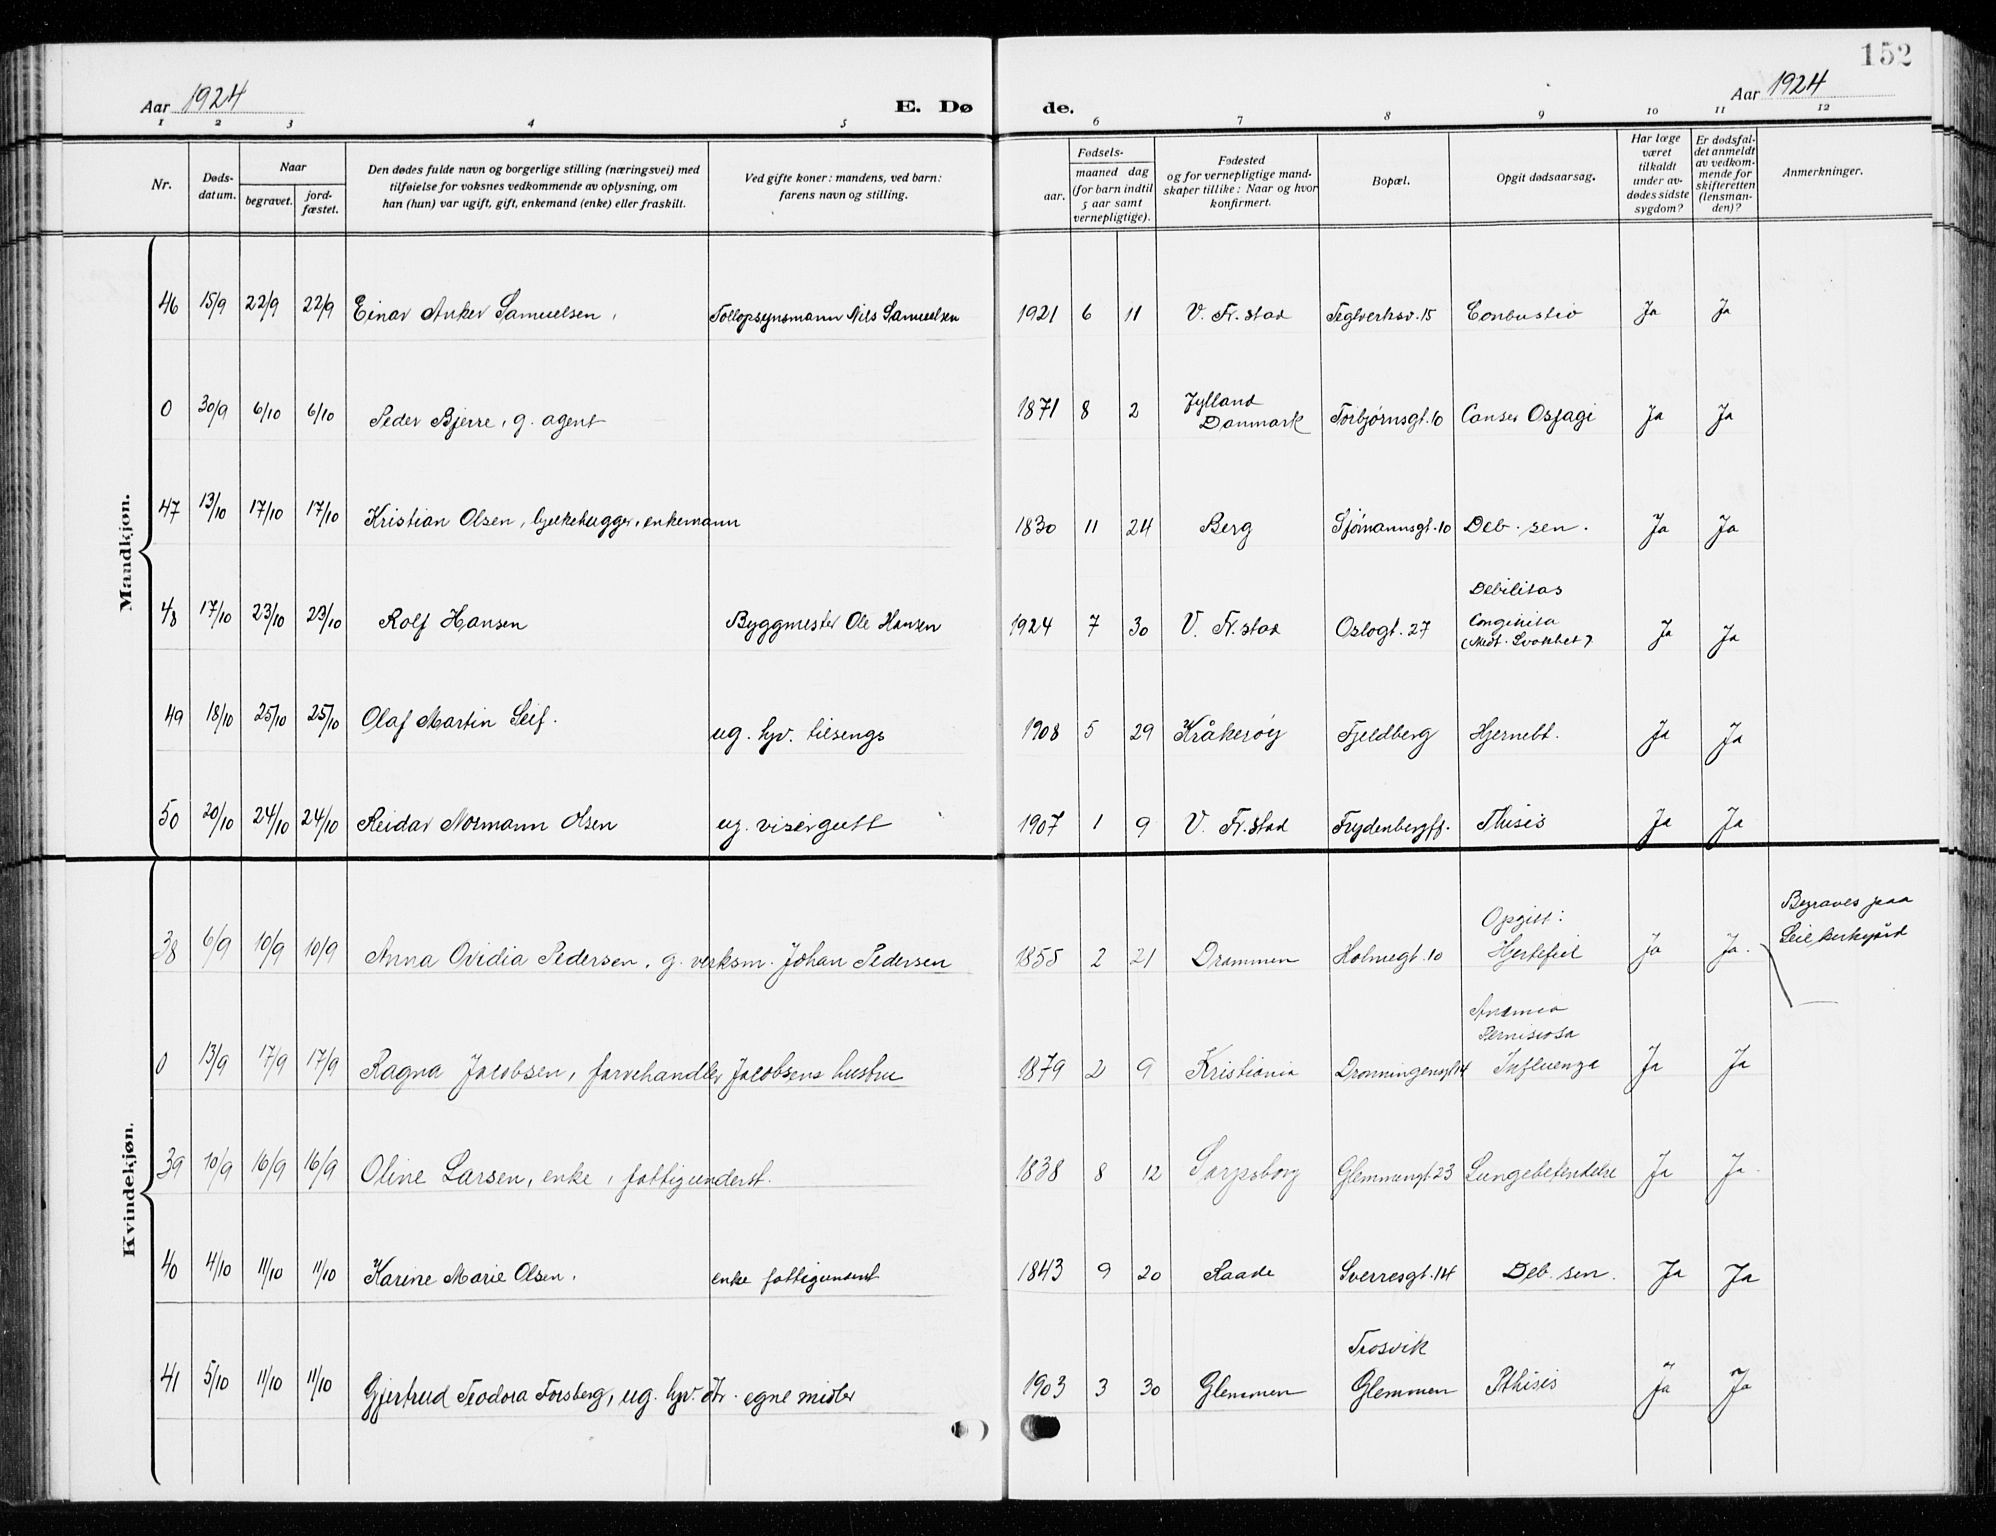 152
Aar 1924 E. Dø de. Aar 1924
1 2 3 4 5 6 7 8 9 10 11 12
Nr.
Døds-
datum.
Naar
begravet.
jord-
fæstet.
Den dødes fulde navn og borgerlige stilling (næringsvei) med
tilføielse for voksnes vedkommende av oplysning, om
han (hun) var ugift, gift, enkemand (enke) eller fraskilt.
Ved gifte koner: mandens, ved barn:
farens navn og stilling.
Fødsels-
aar.
maaned dag
(for barn indtil
5 aar samt
vernepligtige).
Fødested
og for vernepligtige mand-
skaper tillike: Naar og hvor
konfirmert.
Bopæl.
Opgit dødsaarsag.
Har læge
været
tilkaldt
under av-
dødes sidste
sygdom?
Er dødsfal-
det anmeldt
av vedkom-
mende for
skifteretten
(lensman-
den)?
Anmerkninger.
Mandkjøn.
46 15/9 22/9 22/9 Einar Anker Samuelsen, Tollopsynsmann Nils Samuelsen 1921 6 11 V. Fr.stad Teglverksv. 15 Conbustio Ja Ja
0 30/9 6/10 6/10 Peder Bjerre, g. agent 1871 8 2 Jylland
Danmark Torbjørnsgt. 10 Canser Osfagi Ja Ja
47 13/10 17/10 17/10 Kristian Olsen, bjelkehugger, enkemann 1830 11 24 Berg Sjømannsgt. 10 Deb. sen. Ja Ja
48 17/10 23/10 23/10 Rolf Hansen Byggmester Ole Hansen 1924 7 30 V. Fr.stad Oslogt. 27 Debilitas
Congenita
(Medf. Svakhet) Ja Ja
49 18/10 25/10 25/10 Olaf Martin Leif. ug. hjv. tilsengs 1908 5 29 Kråkerøy Fjeldberg Hjernebt. Ja Ja
50 20/10 24/10 24/10 Reidar Normann Olsen ug. visergutt 1907 1 9 V. Fr.stad Frydenbergff. Thisis Ja Ja
Kvindekjøn.
38 6/9 10/9 10/9 Anna Ovidia Pedersen, g. verksm. Johan Pedersen 1855 2 21 Drammen Holmegt. 10 Opgitt:
Hjertefeil Ja Ja. Begraves paa
Leie kirkegård
0 13/9 17/9 17/9 Ragna Jacobsen, farvehandler Jacobsens hustru 1879 2 9 Kristiania Dronningensgt 14 Anæmia
Pernisiosa
Influenza Ja Ja
39 10/9 16/9 16/9 Oline Larsen, enke, fattigunderst. 1838 8 12 Sarpsborg Glemmengt. 23 Lungebetendelse Ja Ja.
40 4/10 11/10 11/10 Karine Marie Olsen, enke fattigunderst 1843 9 20 Raade Sverresgt. 14 Deb. sen. Ja Ja
41 5/10 11/10 11/10 Gjertrud Teodora Forsberg, ug. hjv. dtr. egne midler 1903 3 30 Glemmen Trosvik
Glemmen Pthisis Ja Ja